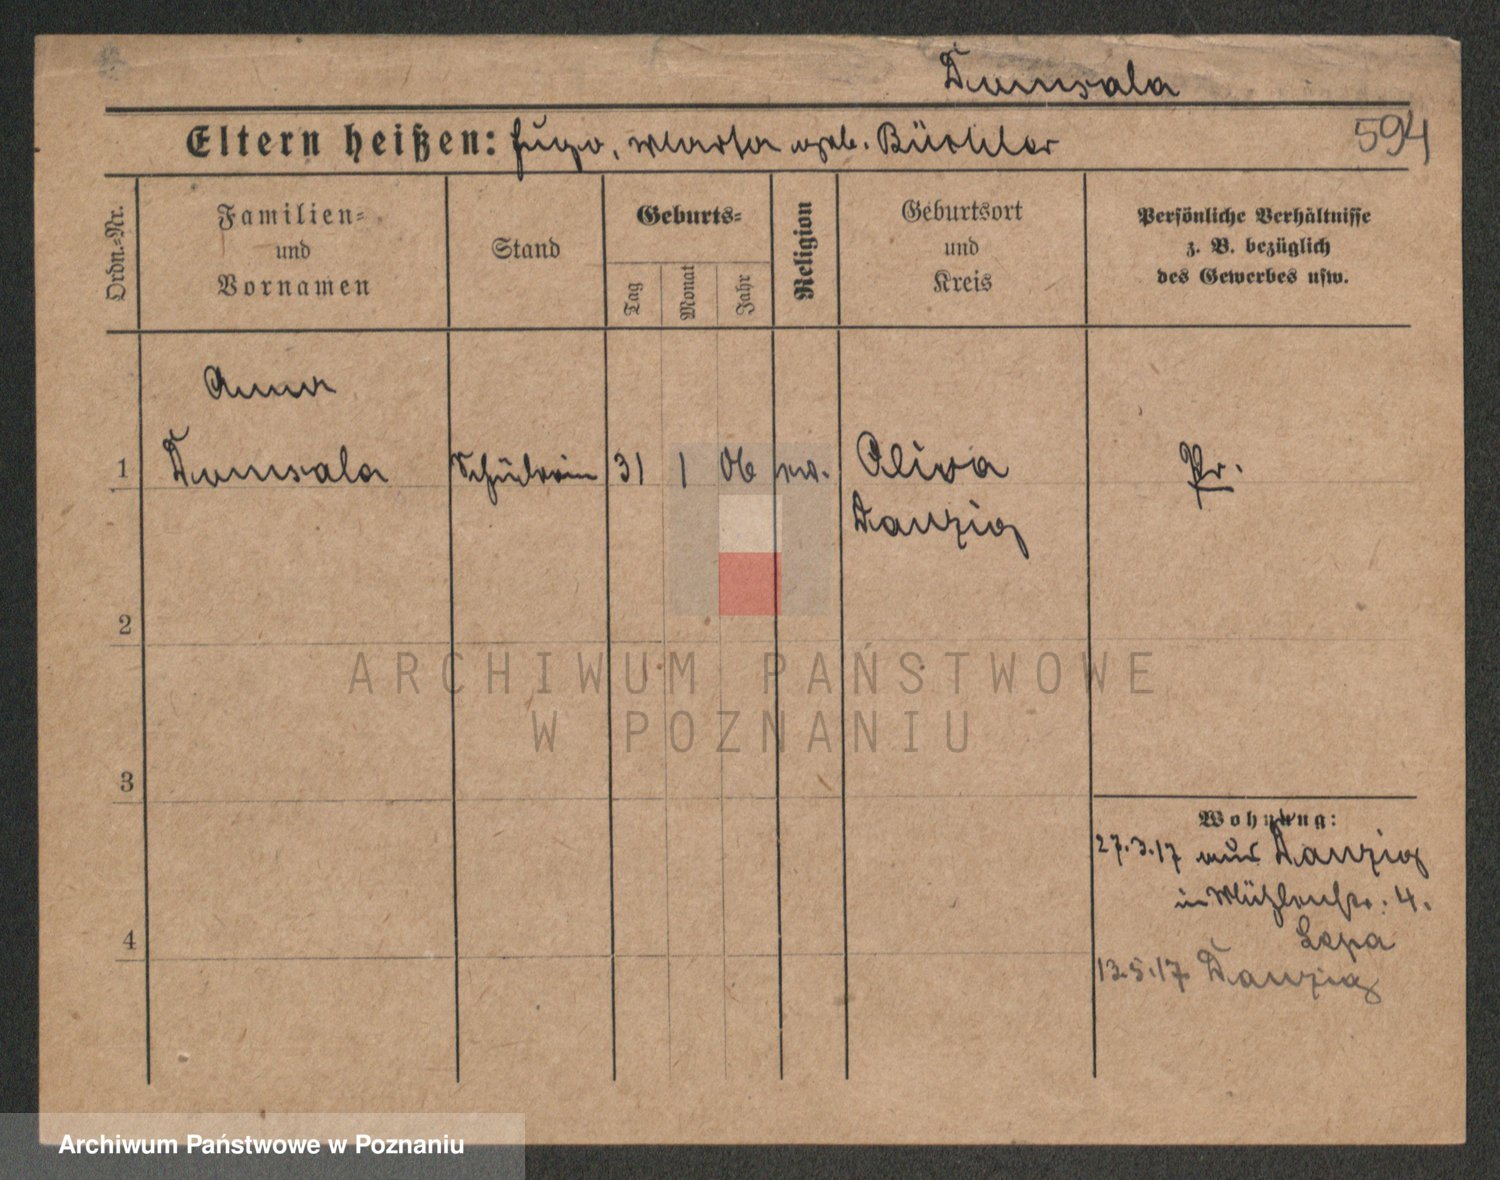 Domsala
Eltern heißen: Hugo, Marta geb. Büchler
594
Ordn.-Nr.
Familien-
und
Vornamen
Stand
Geburts-
Tag
Monat
Jahr
Religion
Geburtsort
und
Kreis
Persönliche Verhältnisse
z. B. bezüglich
des Gewerbes usw.
Anna
1 Domsala Schülerin 31 1 06 ev. Oliva Pr.
Danzig
2
ARCHIWUM PAŃSTWOWE
W POZNANIU
3
Wohnung:
27.3.17 aus Danzig
in Mühlenstr. 4.
4
13.5.17 Danzig
Archiwum Państwowe w Poznaniu